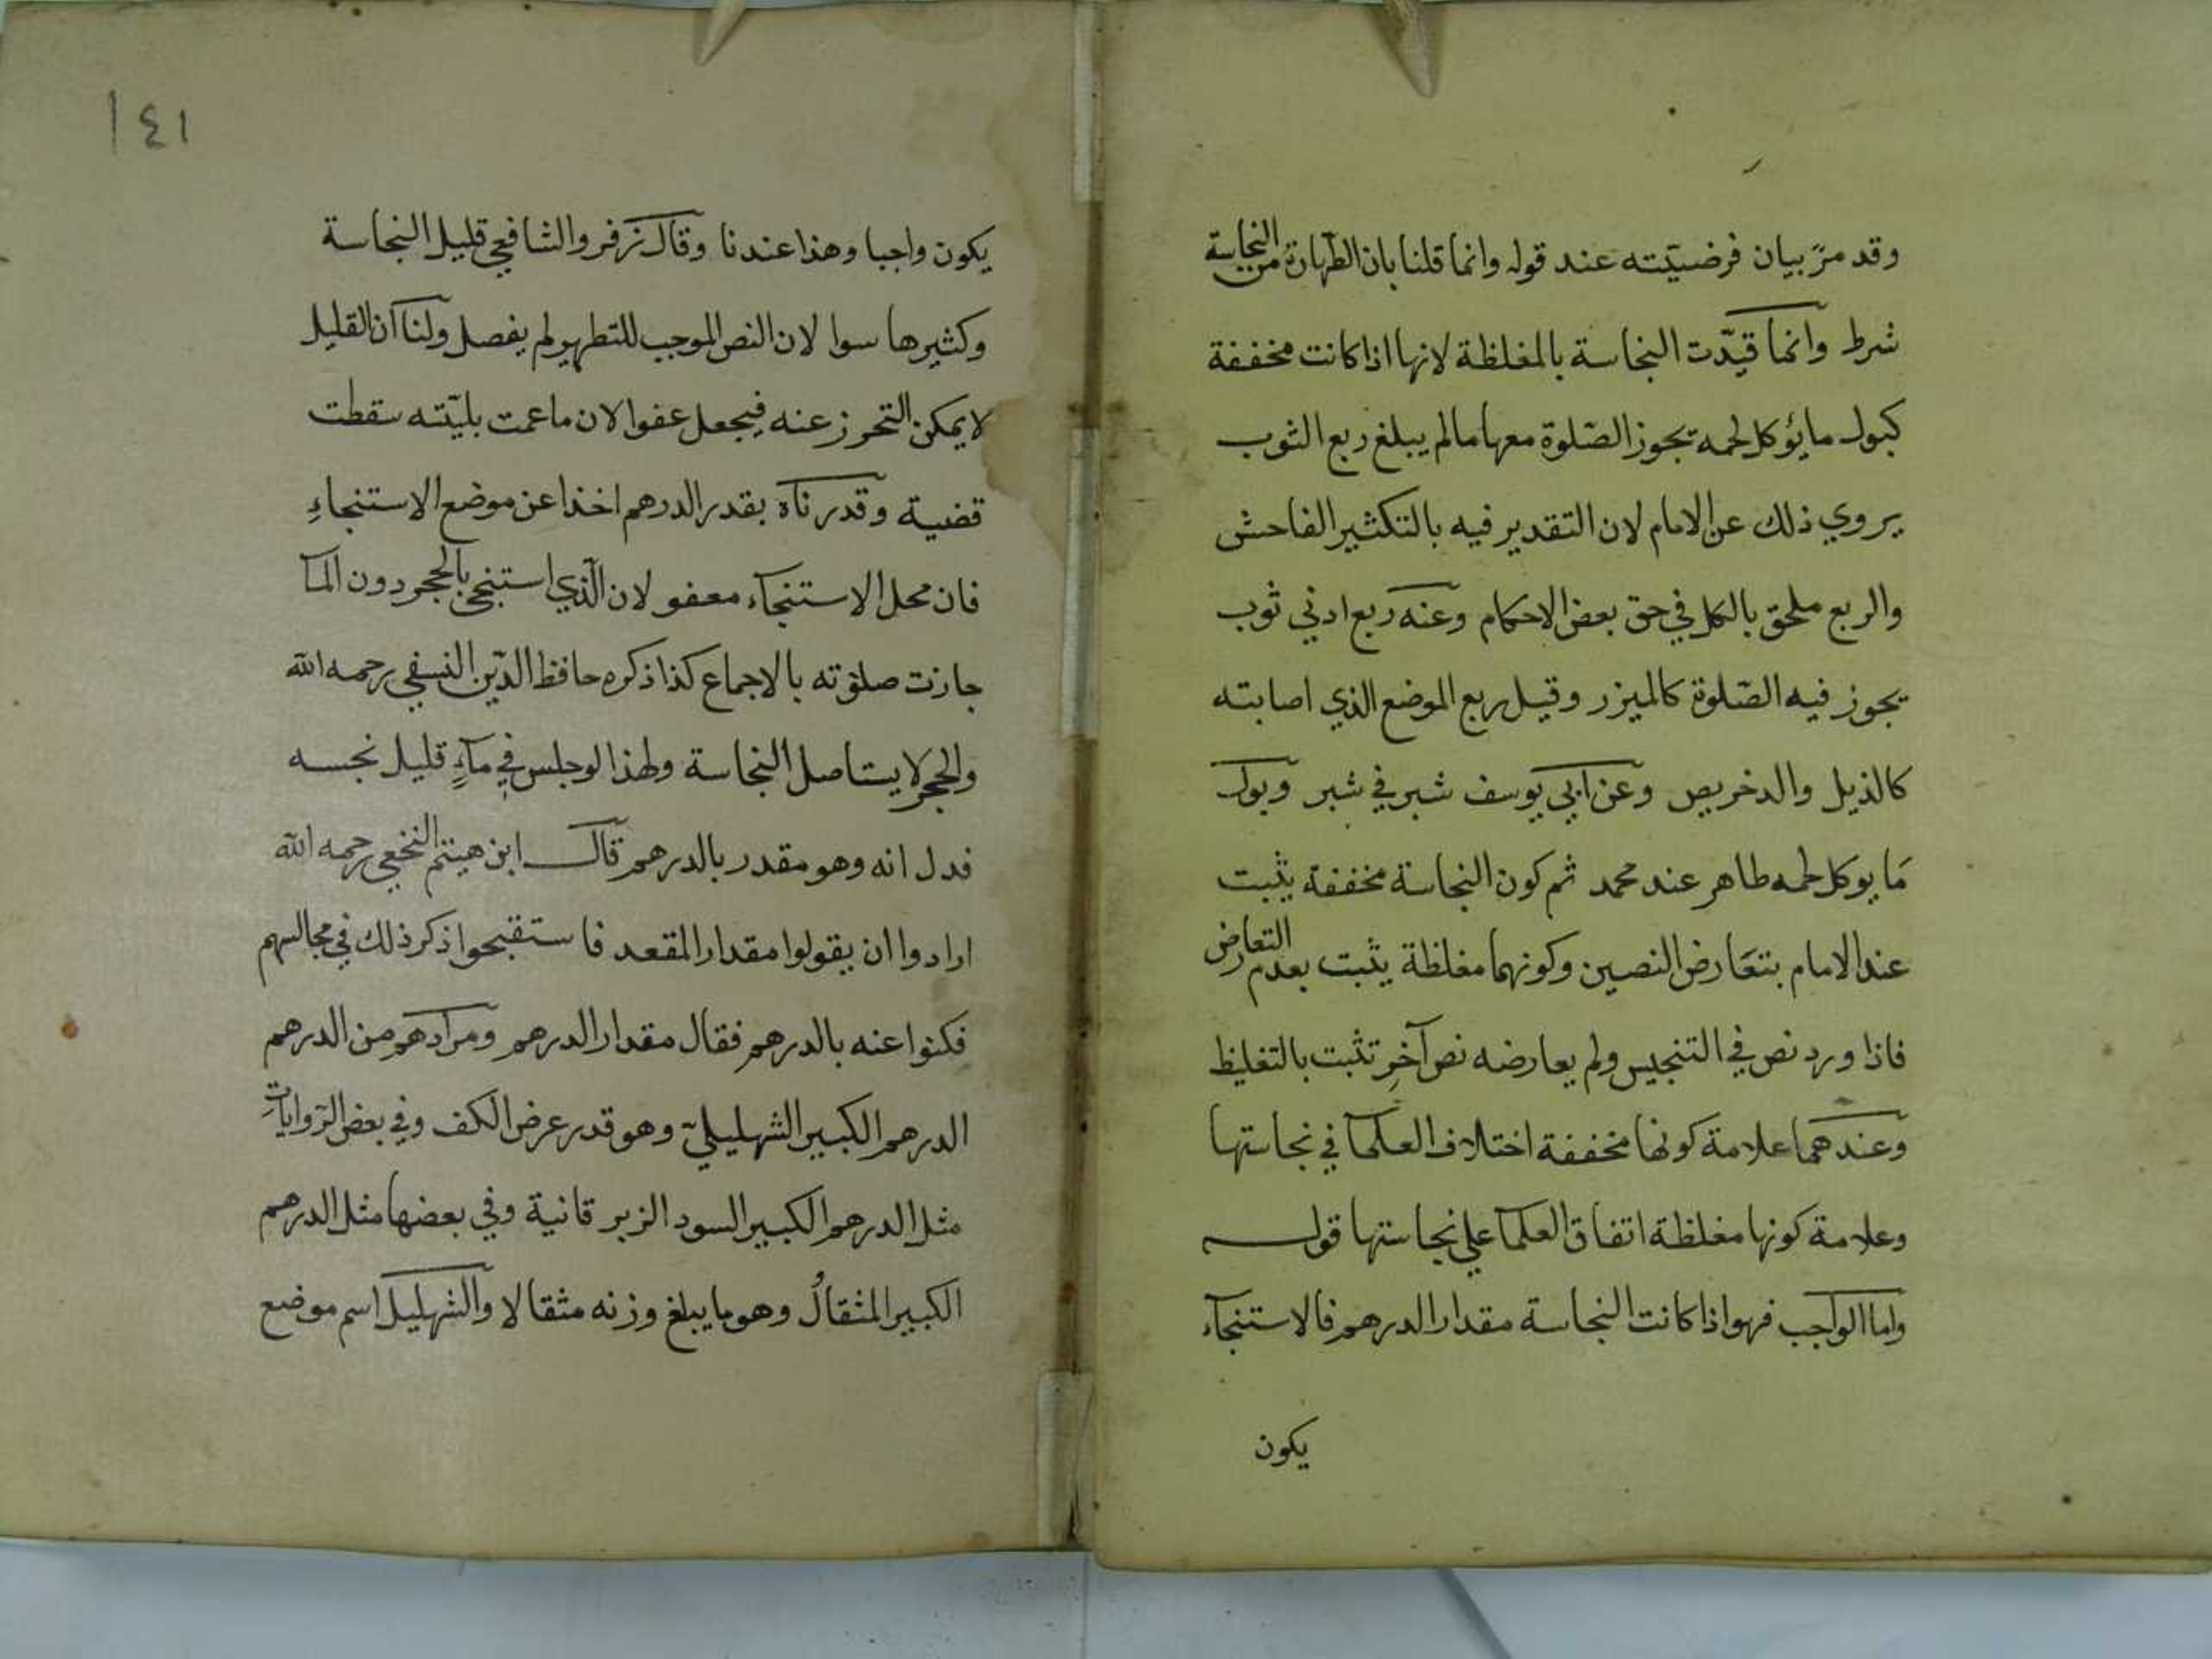 وقد مرّ بيان فرضيّته عند قوله وانما قلنا بان الطّهارة من النجاسة
شرط وانما قيّدت النجاسة بالمغلظة لانها اذا كانت مخففة
كبول ما يؤكل لحمه تجوز الصّلوة معها مالم يبلغ ربع الثوب
يروي ذلك عن الامام لان التقدير فيه بالتكثير الفاحش
والربع ملحق بالكل في حق بعض الاحكام وعنه ربع ادني ثوب
يجوز فيه الصّلوة كالميزر وقيل ربع الموضع الذي اصابته
كالذيل والدخريص وعن ابي يوسف شبر في شبر وبول
مَا يوكل لحمه طاهر عند محمد ثم كون النجاسة مخففة يثبت
عند الامام بتعَارض النصين وكونهما مغلظة يثبت بعدم التعارض
فاذا ورد نص في التنجيس ولم يعارضه نص آخر تثبت بالتغليظ
وعندهما علامة كونها مخففة اختلاف العلما في نجاستها
وعلامة كونها مغلظة اتفاق العلما علي نجاستها قوله
واما الواجب فهو اذا كانت النجاسة مقدار الدرهم فالاستنجآء
يكون
١٤١
يكون واجبا وهذا عندنا وقال زفر والشافعي قليل النجاسة
وكثيرها سوا لان النص الموجب للتطهير لم يفصل ولنا ان القليل
لا يمكن التحرز عنه فيجعل عفوا لان ما عمت بليّته سقطت
قضية وقدرناه بقدر الدرهم اخذا عن موضع الاستنجاءِ
فان محل الاستنجآء معفو لان الّذي استنجي بالحجر دون المآ
جازت صلوته بالاجماع كذا ذكره حافظ الدّين النسفي رحمه الله
والحجر لا يستاصل النجاسة ولهذا لو جلس في مآءٍ قليل نجسه
فدل انه وهو مقدر بالدرهم قال ابن هيتم النخعي رحمه الله
ارادوا ان يقولوا مقدار المقعد فاستقبحوا ذكر ذلك في مجالسهم
فكنوا عنه بالدرهم فقال مقدار الدرهم ومرادهم من الدرهم
الدرهم الكبير الشهليليّ وهو قدر عرض الكف وفي بعض الرّواياتِ
مثل الدرهم الكبير السود الزبرقانية وفي بعضها مثل الدرهم
الكبير المثقالُ وهو ما يبلغ وزنه مثقالا والشهليل اسم موضع